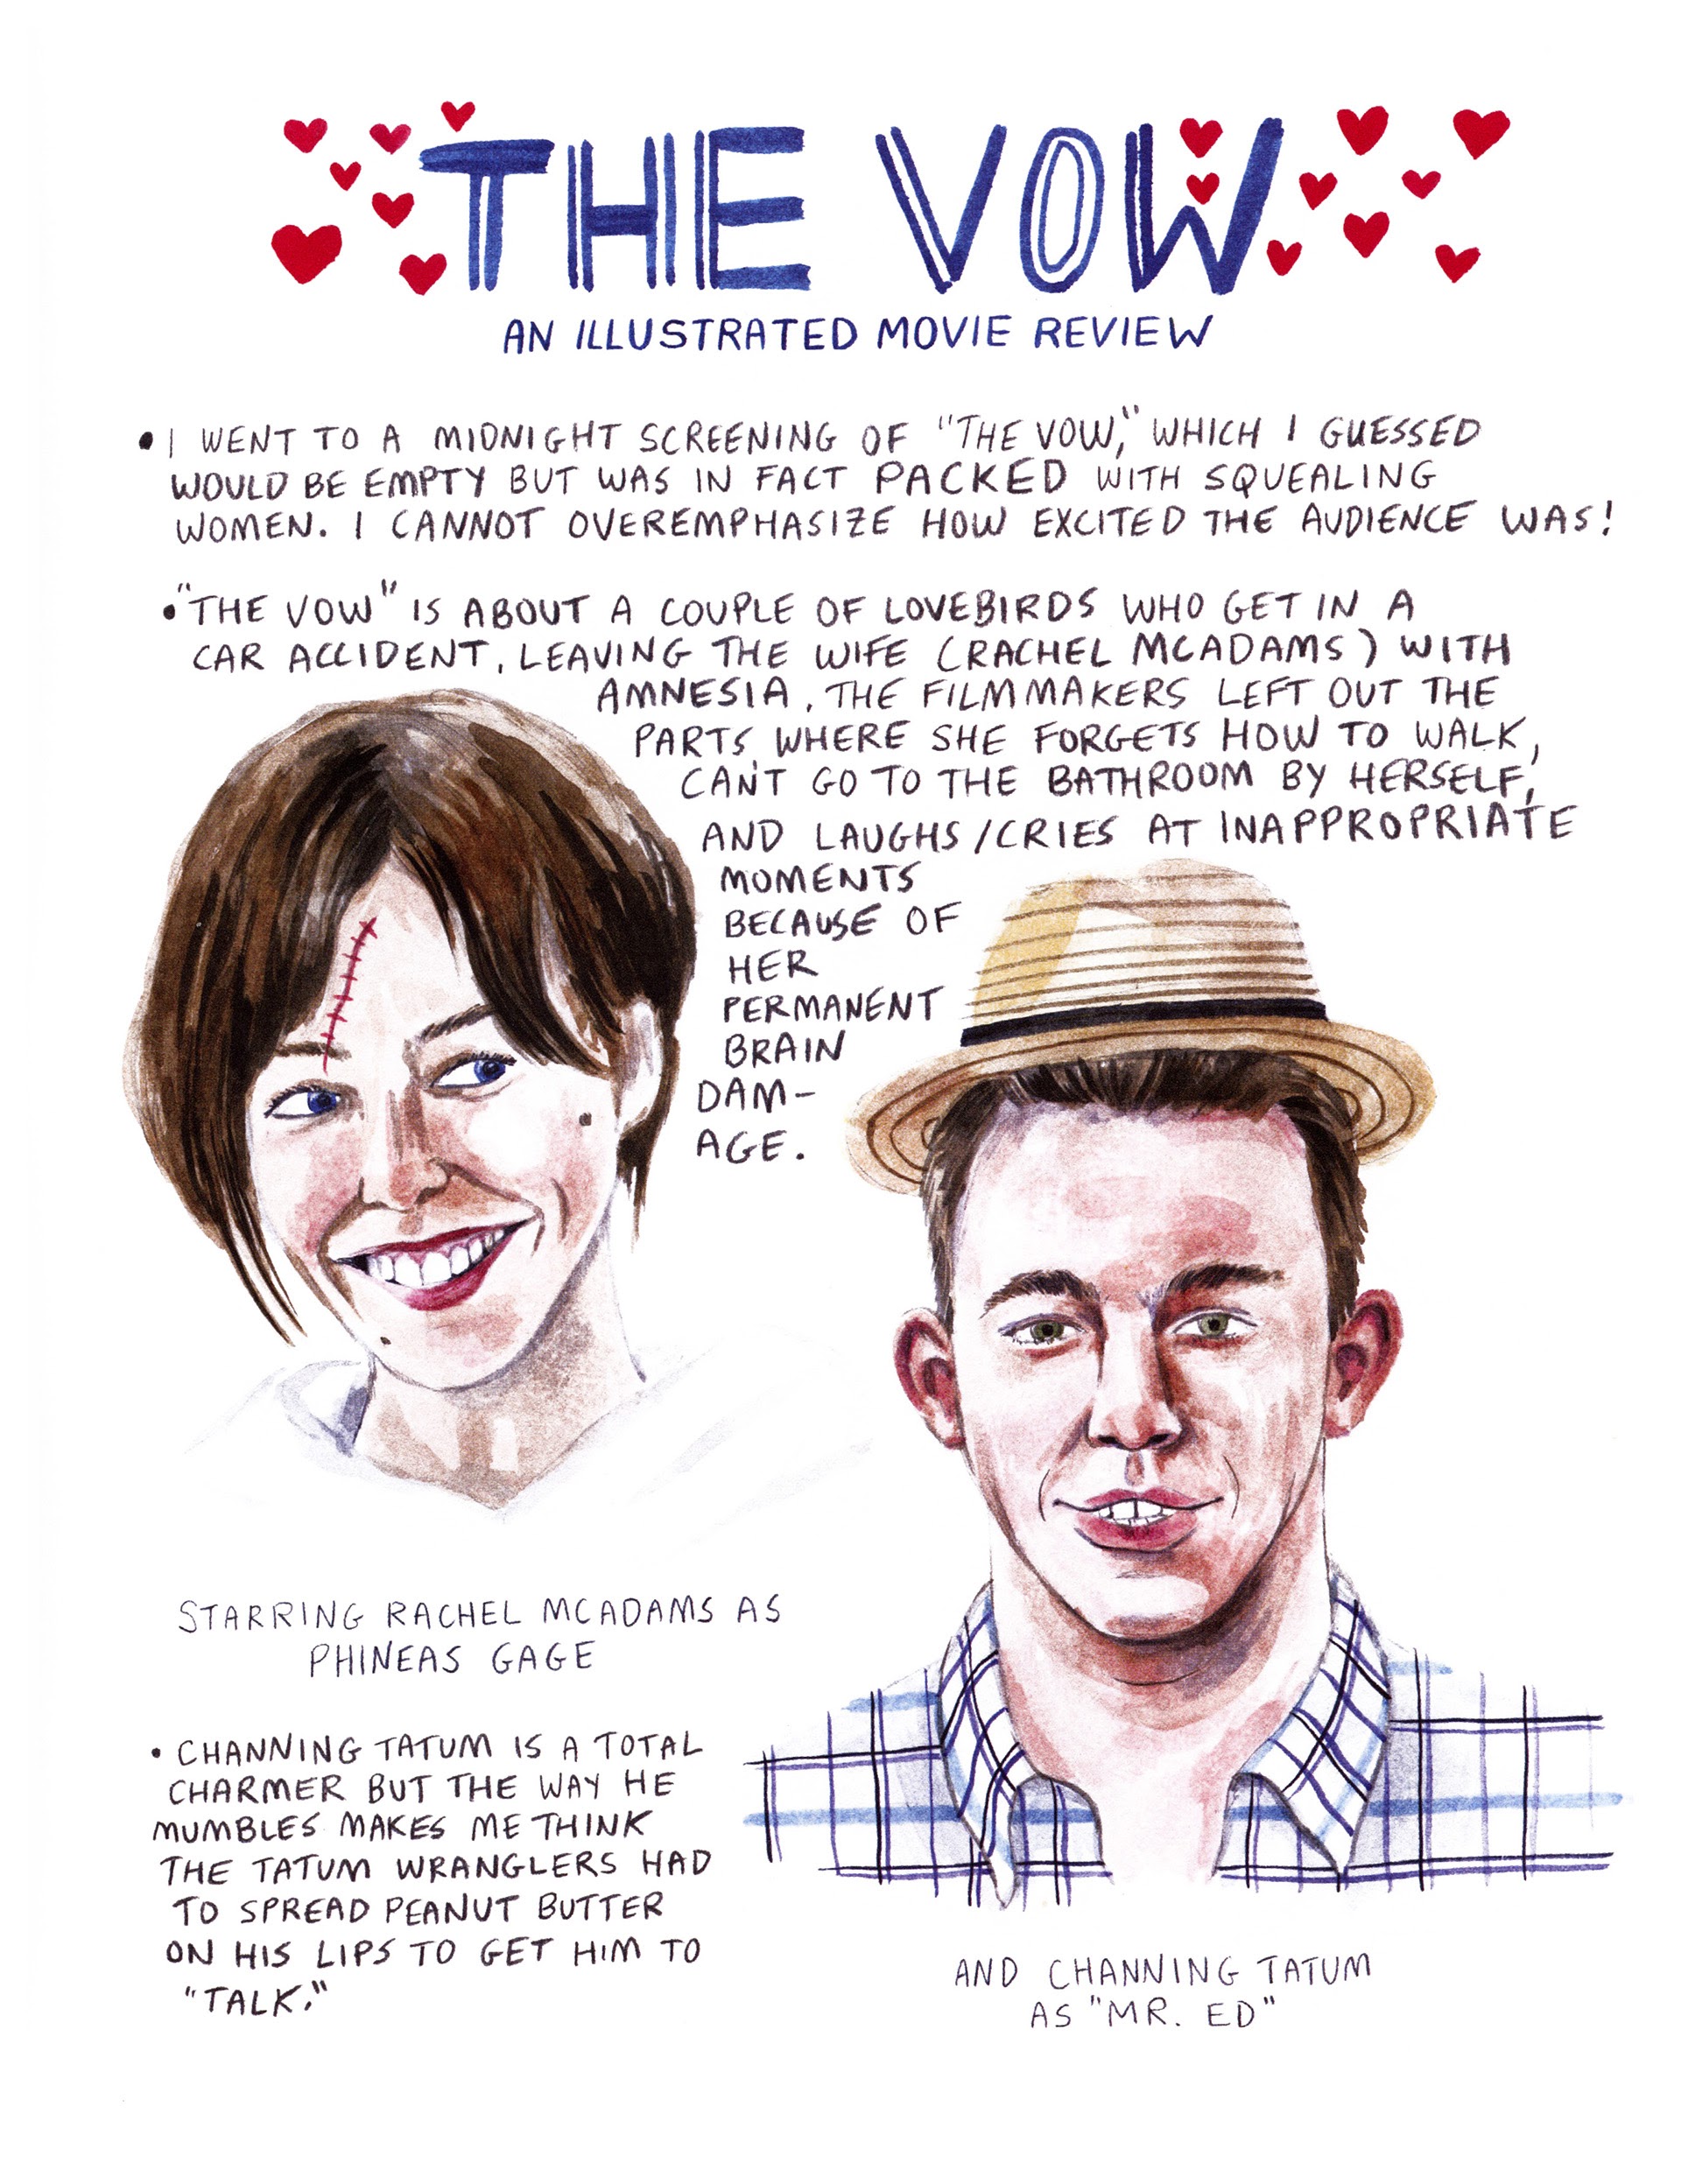 THE VOW
AN ILLUSTRATED MOVIE REVIEW
• I WENT TO A MIDNIGHT SCREENING OF "THE VOW," WHICH I GUESSED
WOULD BE EMPTY BUT WAS IN FACT PACKED WITH SQUEALING
WOMEN. I CANNOT OVEREMPHASIZE HOW EXCITED THE AUDIENCE WAS!
• "THE VOW" IS ABOUT A COUPLE OF LOVEBIRDS WHO GET IN A
CAR ACCIDENT, LEAVING THE WIFE (RACHEL MCADAMS) WITH
AMNESIA, THE FILMMAKERS LEFT OUT THE
PARTS WHERE SHE FORGETS HOW TO WALK,
CAN'T GO TO THE BATHROOM BY HERSELF,
AND LAUGHS/CRIES AT INAPPROPRIATE
MOMENTS
BECAUSE OF
HER
PERMANENT
BRAIN
DAM-
AGE.
STARRING RACHEL MCADAMS AS
PHINEAS GAGE
• CHANNING TATUM IS A TOTAL
CHARMER BUT THE WAY HE
MUMBLES MAKES ME THINK
THE TATUM WRANGLERS HAD
TO SPREAD PEANUT BUTTER
ON HIS LIPS TO GET HIM TO
"TALK."
AND CHANNING TATUM
AS "MR. ED"